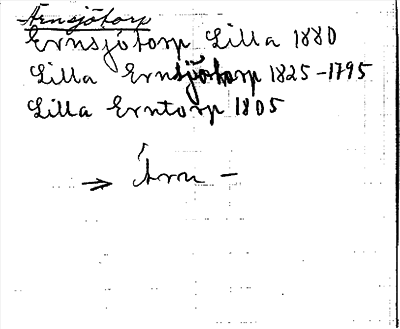 Ärnsjötorp
Ernsjötorp Lilla 1880
Lilla Ernsjötorp 1825-1795
Lilla Erntorp 1805
→ Ärn -